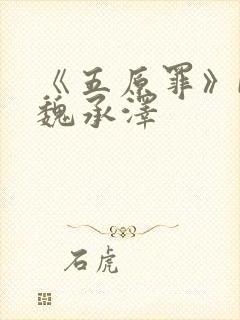 《五原罪》
魏承泽
石虎